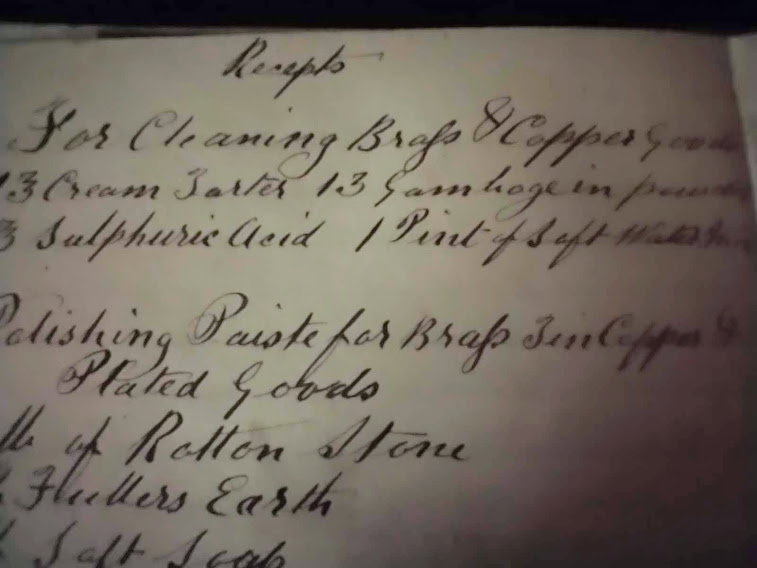 Recepts
For Cleaning Brass & Copper Goods
1 ℥ Cream Tarter 1 ℥ Gamboge in powder
℥ Sulphuric Acid 1 Pint of Soft Water
Polishing Paiste for Brass Tin Copper &
Plated Goods
lb of Rotton Stone
Fullers Earth
Soft Soap